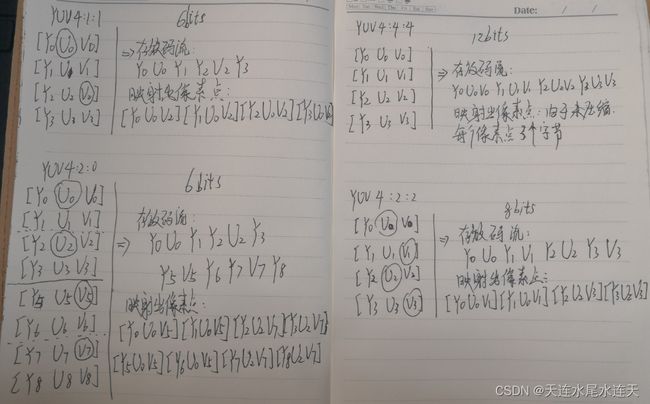 YUV4:1:1 6bits
[Y0 U0 V0]
[Y1 U1 V1]
[Y2 U2 V2]
[Y3 U3 V3]
⇒ 存放码流:
Y0 U0 Y1 Y2 V2 Y3
映射出像素点:
[Y0 U0 V2] [Y1 U0 V2] [Y2 U0 V2] [Y3 U0 V2]
YUV4:2:0 6bits
[Y0 U0 V0]
[Y1 U1 V1]
[Y2 U2 V2]
[Y3 U3 V3]
[Y5 U5 V5]
[Y6 U6 V6]
[Y7 U7 V7]
[Y8 U8 V8]
存放码流:
⇒ Y0 U0 Y1 Y2 U2 Y3
Y5 V5 Y6 Y7 V7 Y8
映射出像素点:
[Y0 U0 V5] [Y1 U0 V5] [Y2 U2 V7] [Y3 U2 V7]
[Y5 U0 V5] [Y6 U0 V5] [Y7 U2 V7] [Y8 U2 V7]
Date: / /
YUV4:4:4 12bits
[Y0 U0 V0]
[Y1 U1 V1]
[Y2 U2 V2]
[Y3 U3 V3]
⇒ 存放码流:
Y0 U0 V0 Y1 U1 V1 Y2 U2 V2 Y3 U3 V3
映射出像素点: 由于未压缩
每个像素点3个字节
YUV4:2:2 8bits
[Y0 U0 V0]
[Y1 U1 V1]
[Y2 U2 V2]
[Y3 U3 V3]
⇒ 存放码流:
Y0 U0 Y1 V1 Y2 U2 Y3 V3
映射出像素点:
[Y0 U0 V1] [Y1 U0 V1] [Y2 U2 V3] [Y3 U2 V3]
CSDN @天连水尾水连天